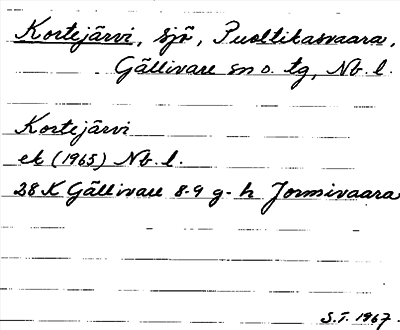 Kortejärvi, sjö, Puoltikasvaara,
Gällivare sn o. tg, Nb. l.
Kortejärvi
ek (1965) Nb. l.
28 K Gällivare 8-9 g-h Jormivaara
S.T. 1967.